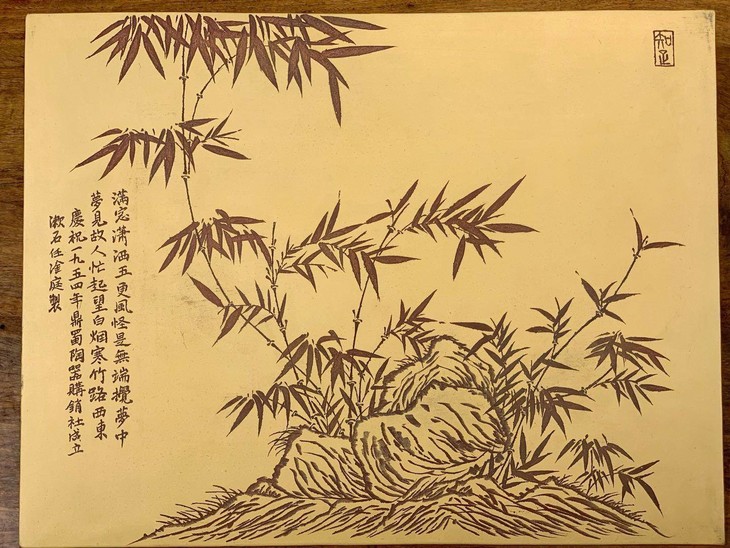 知足
滿窓瀟洒五更風怪是無端攪夢中
夢見故人忙起望白烟寒竹路西東
慶祝一九五四年鼎蜀陶器購銷社成立
漱石任淦庭製